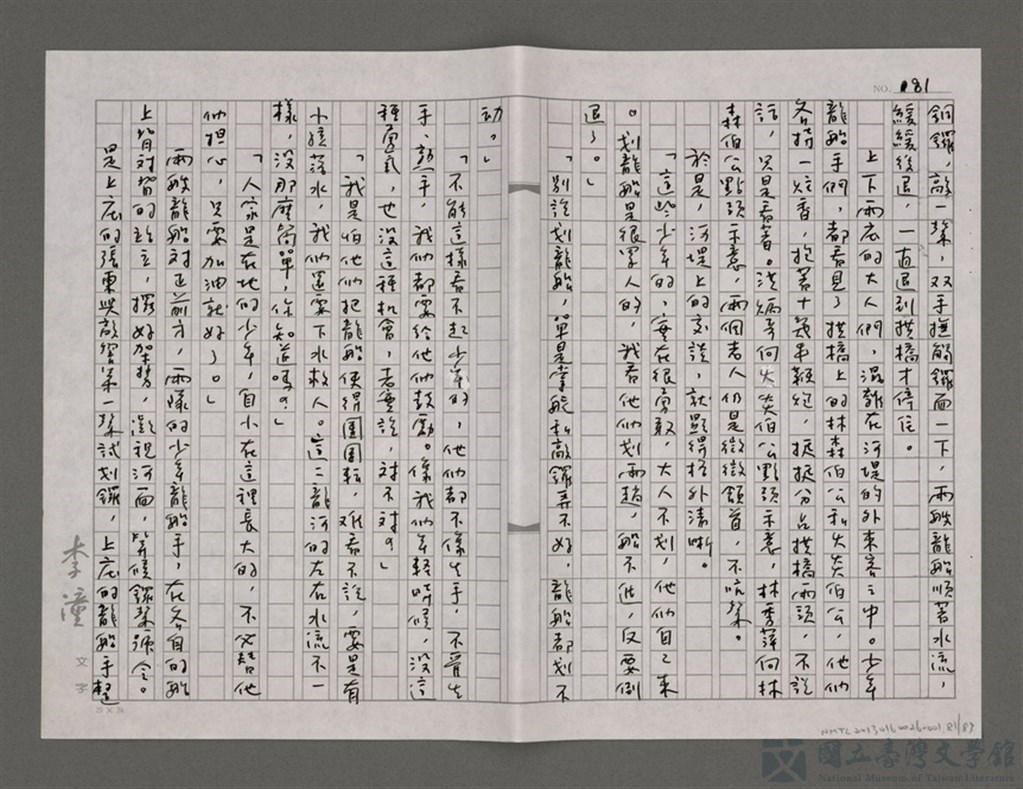 NO. 181
銅鑼，敲一聲，双手撫觸鑼面一下，兩艘龍船順著水流，
緩緩後退，一直退到拱橋才停住。
上下兩庄的大人們，混雜在河堤的外來客之中。少年
龍船手們，都看見了拱橋上的林森伯公和火炎伯公，他們
各持一炷香，抱著十幾串鞭炮，挺挺分占拱橋兩頭，不說
話，只是看著。洪炳考向火炎伯公點頭示意，林秀萍向林
森伯公點頭示意，兩個老人仍是微微頷首，不吭聲。
於是，河堤上的交談，就顯得格外清晰。
「這些少年的，實在很勇敢，大人不划，他們自己來
。划龍船是很累人的，我看他們划兩趟，船不進，反要倒
退了。」
「別說划龍船，單是掌舵和敲鑼弄不好，龍船都划不
动。」
「不能這樣看不起少年的，他們都不像生手，不管生
手、熟手，我們都要給他們鼓勵。像我們年輕時候，沒這
種勇氣，也沒這種机會，老實說，对不对？」
「我是怕他們把龍船使得團團転，难看不說，要是有
小孩落水，我們還要下水救人。這二龍河的左右水流不一
樣，沒那麼簡單，你知道嗎？」
「人家是在地的少年，自小在這裡長大的，不必替他
們担心，只要加油就好了。」
兩艘龍船对正前方，兩隊的少年龍船手，在各自的船
上背对背的站立，擺好架勢，凝視河面，等候鑼聲號令。
是上庄的張東興敲響第一聲試划鑼，上庄的龍船手整
李潼
文字
25 X 24
NMTL20130160026-001.81/83
國立臺灣文學館
National Museum of Taiwan Literature